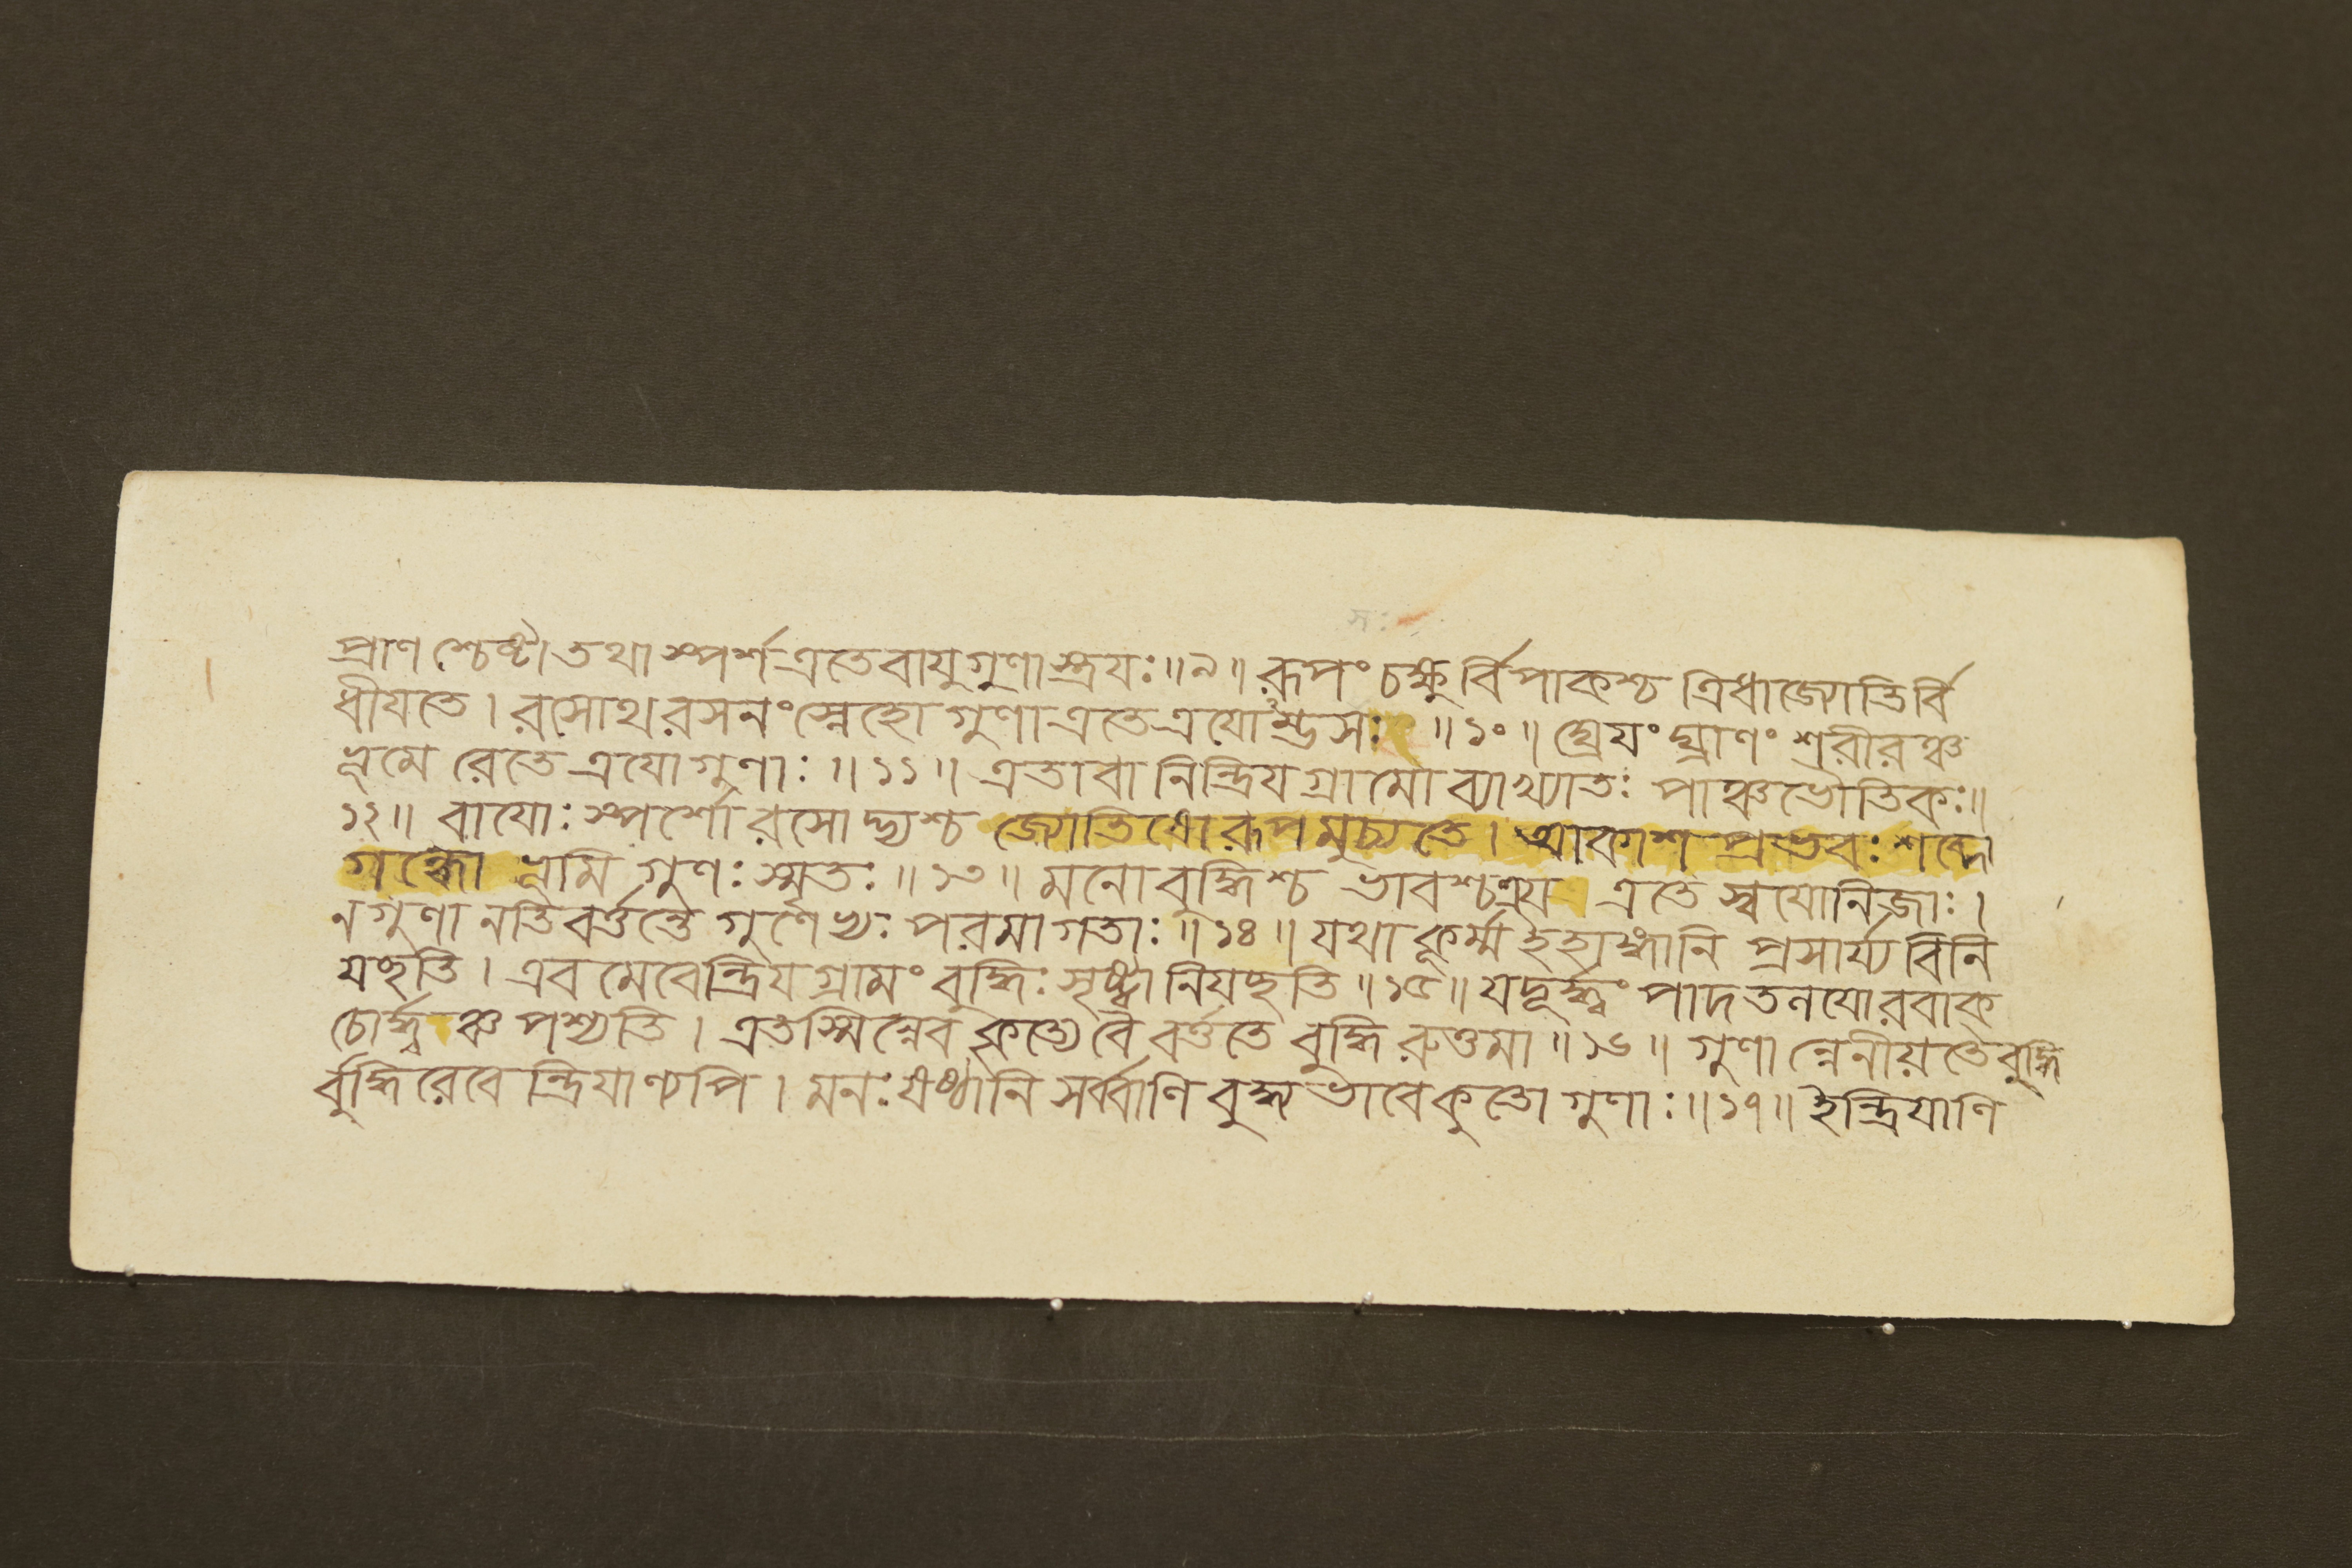 প্রাণ শ্চেষ্টা তথা স্পর্শ এতে বাযুগুণাস্ত্রযঃ ॥ ৯ ॥ রূপং চক্ষুর্বিপাকশ্চ ত্রিধা জ্যোতির্বি
ধীযতে । রসোথ রসনং স্নেহো গুণা এতে ত্রযোম্ভসঃ ॥ ১০ ॥ ঘ্রেযং ঘ্রাণং শরীরঞ্চ
ভূমেরেতে ত্রযো গুণাঃ ॥ ১১ ॥ এতাবানিন্দ্রিযগ্রামো ব্যাখ্যাতঃ পাঞ্চভৌতিকঃ ॥
১২ ॥ বাযোঃ স্পর্শো রসোদ্ভ্যশ্চ জ্যোতিষো রূপমুচ্যতে । আকাশ প্রভবঃ শব্দো
গন্ধো ভূমি গুণঃ স্মৃতঃ ॥ ১৩ ॥ মনো বুদ্ধিশ্চ ভাবশ্চ ত্রয এতে স্বযোনিজাঃ ।
ন গুণানতিবর্ত্তন্তে গুণেভ্যঃ পরমাগতাঃ ॥ ১৪ ॥ যথা কূর্ম্ম ইহাঙ্গানি প্রসার্য্য বিনি
যচ্ছতি । এবমেবেন্দ্রিযগ্রামং বুদ্ধিঃ সৃষ্ট্বা নিযচ্ছতি ॥ ১৫ ॥ যদূর্দ্ধ্বং পাদতনযোরবাক্
চোর্দ্ধ্বঞ্চ পশ্যতি । এতস্মিন্নেব কৃত্যে বৈ বর্ত্ততে বুদ্ধিরুত্তমা ॥ ১৬ ॥ গুণান্নেনীয়তে বুদ্ধি
র্বুদ্ধিরেবেন্দ্রিযাণ্যপি । মনঃ ষষ্ঠানি সর্ব্বাণি বুদ্ধ্য ভাবে কুতো গুণাঃ ॥ ১৭ ॥ ইন্দ্রিযাণি